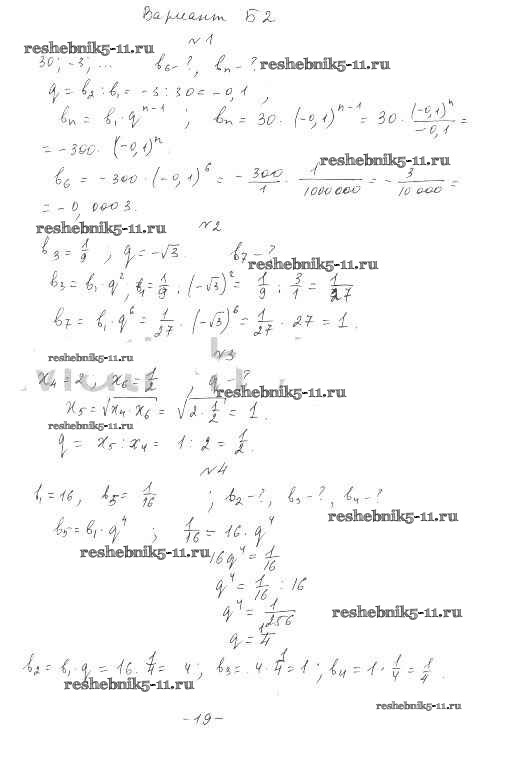 Вариант Б2
№1
reshebnik5-11.ru
30; -3; ... b₆ - ?, bₙ - ? reshebnik5-11.ru
q = b₂ : b₁ = -3 : 30 = -0,1 ,
bₙ = b₁ · qⁿ⁻¹ ; bₙ = 30 · (-0,1)ⁿ⁻¹ = 30 · (-0,1)ⁿ/-0,1 =
= -300 · (-0,1)ⁿ.
reshebnik5-11.ru
b₆ = -300 · (-0,1)⁶ = - 300/1 · 1/1000000 = - 3/10000 =
= -0,0003.
reshebnik5-11.ru №2
b₃ = 1/9 ; q = -√3. b₇ - ?
reshebnik5-11.ru
b₃ = b₁ · q², b₁ = 1/9 : (-√3)² = 1/9 : 3/1 = 1/27
b₇ = b₁ · q⁶ = 1/27 · (-√3)⁶ = 1/27 · 27 = 1.
reshebnik5-11.ru №3
x₄ = 2; x₆ = 1/2 , q - ?
reshebnik5-11.ru
x₅ = √x₄ · x₆ = √2 · 1/2 = 1.
reshebnik5-11.ru
q = x₅ : x₄ = 1 : 2 = 1/2.
№4
b₁ = 16, b₅ = 1/16 ; b₂ - ?, b₃ - ?, b₄ - ?
reshebnik5-11.ru
b₅ = b₁ · q⁴ ; 1/16 = 16 · q⁴
reshebnik5-11.ru 16q⁴ = 1/16
q⁴ = 1/16 : 16
q⁴ = 1/256 reshebnik5-11.ru
q = 1/4
b₂ = b₁ · q = 16 · 1/4 = 4; b₃ = 4 · 1/4 = 1; b₄ = 1 · 1/4 = 1/4.
reshebnik5-11.ru
reshebnik5-11.ru
-19-